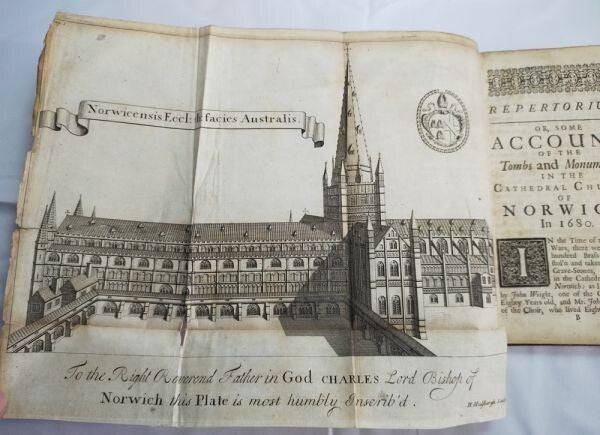 Norwicensis Eccl: facies Australis.
To the Right Reverend Father in God CHARLES Lord Bishop of
Norwich this Plate is most humbly Inscrib'd.
REPERTORIU
OR, SOME
ACCOUN
OF THE
Tombs and Monum
IN THE
CATHEDRAL CHU
OF
NORWIC
In 1680.
IN the Time of
Wars, there we
hundred Brass
stol'n and take
Grave-Stones,
in the Cathed
Norwich: as I
by John Wright, one of the C
Eighty Years old, and Mr. Joh
of the Choir, who lived Eight
B